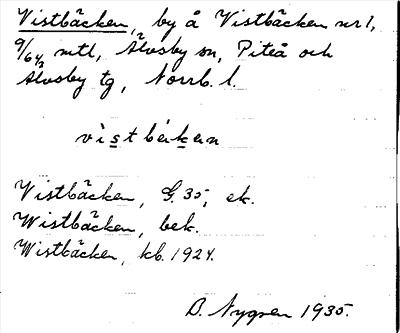 Vistbäcken, by å Vistbäcken nr 1,
9/64 mtl, Älvsby sn, Piteå och
Älvsby tg, Norrb. l.
vistbèkan
Vistbäcken, G. 35, ek.
Wistbäcken, bek.
Wistbäcken, kb. 1924.
D. Nygren 1935.